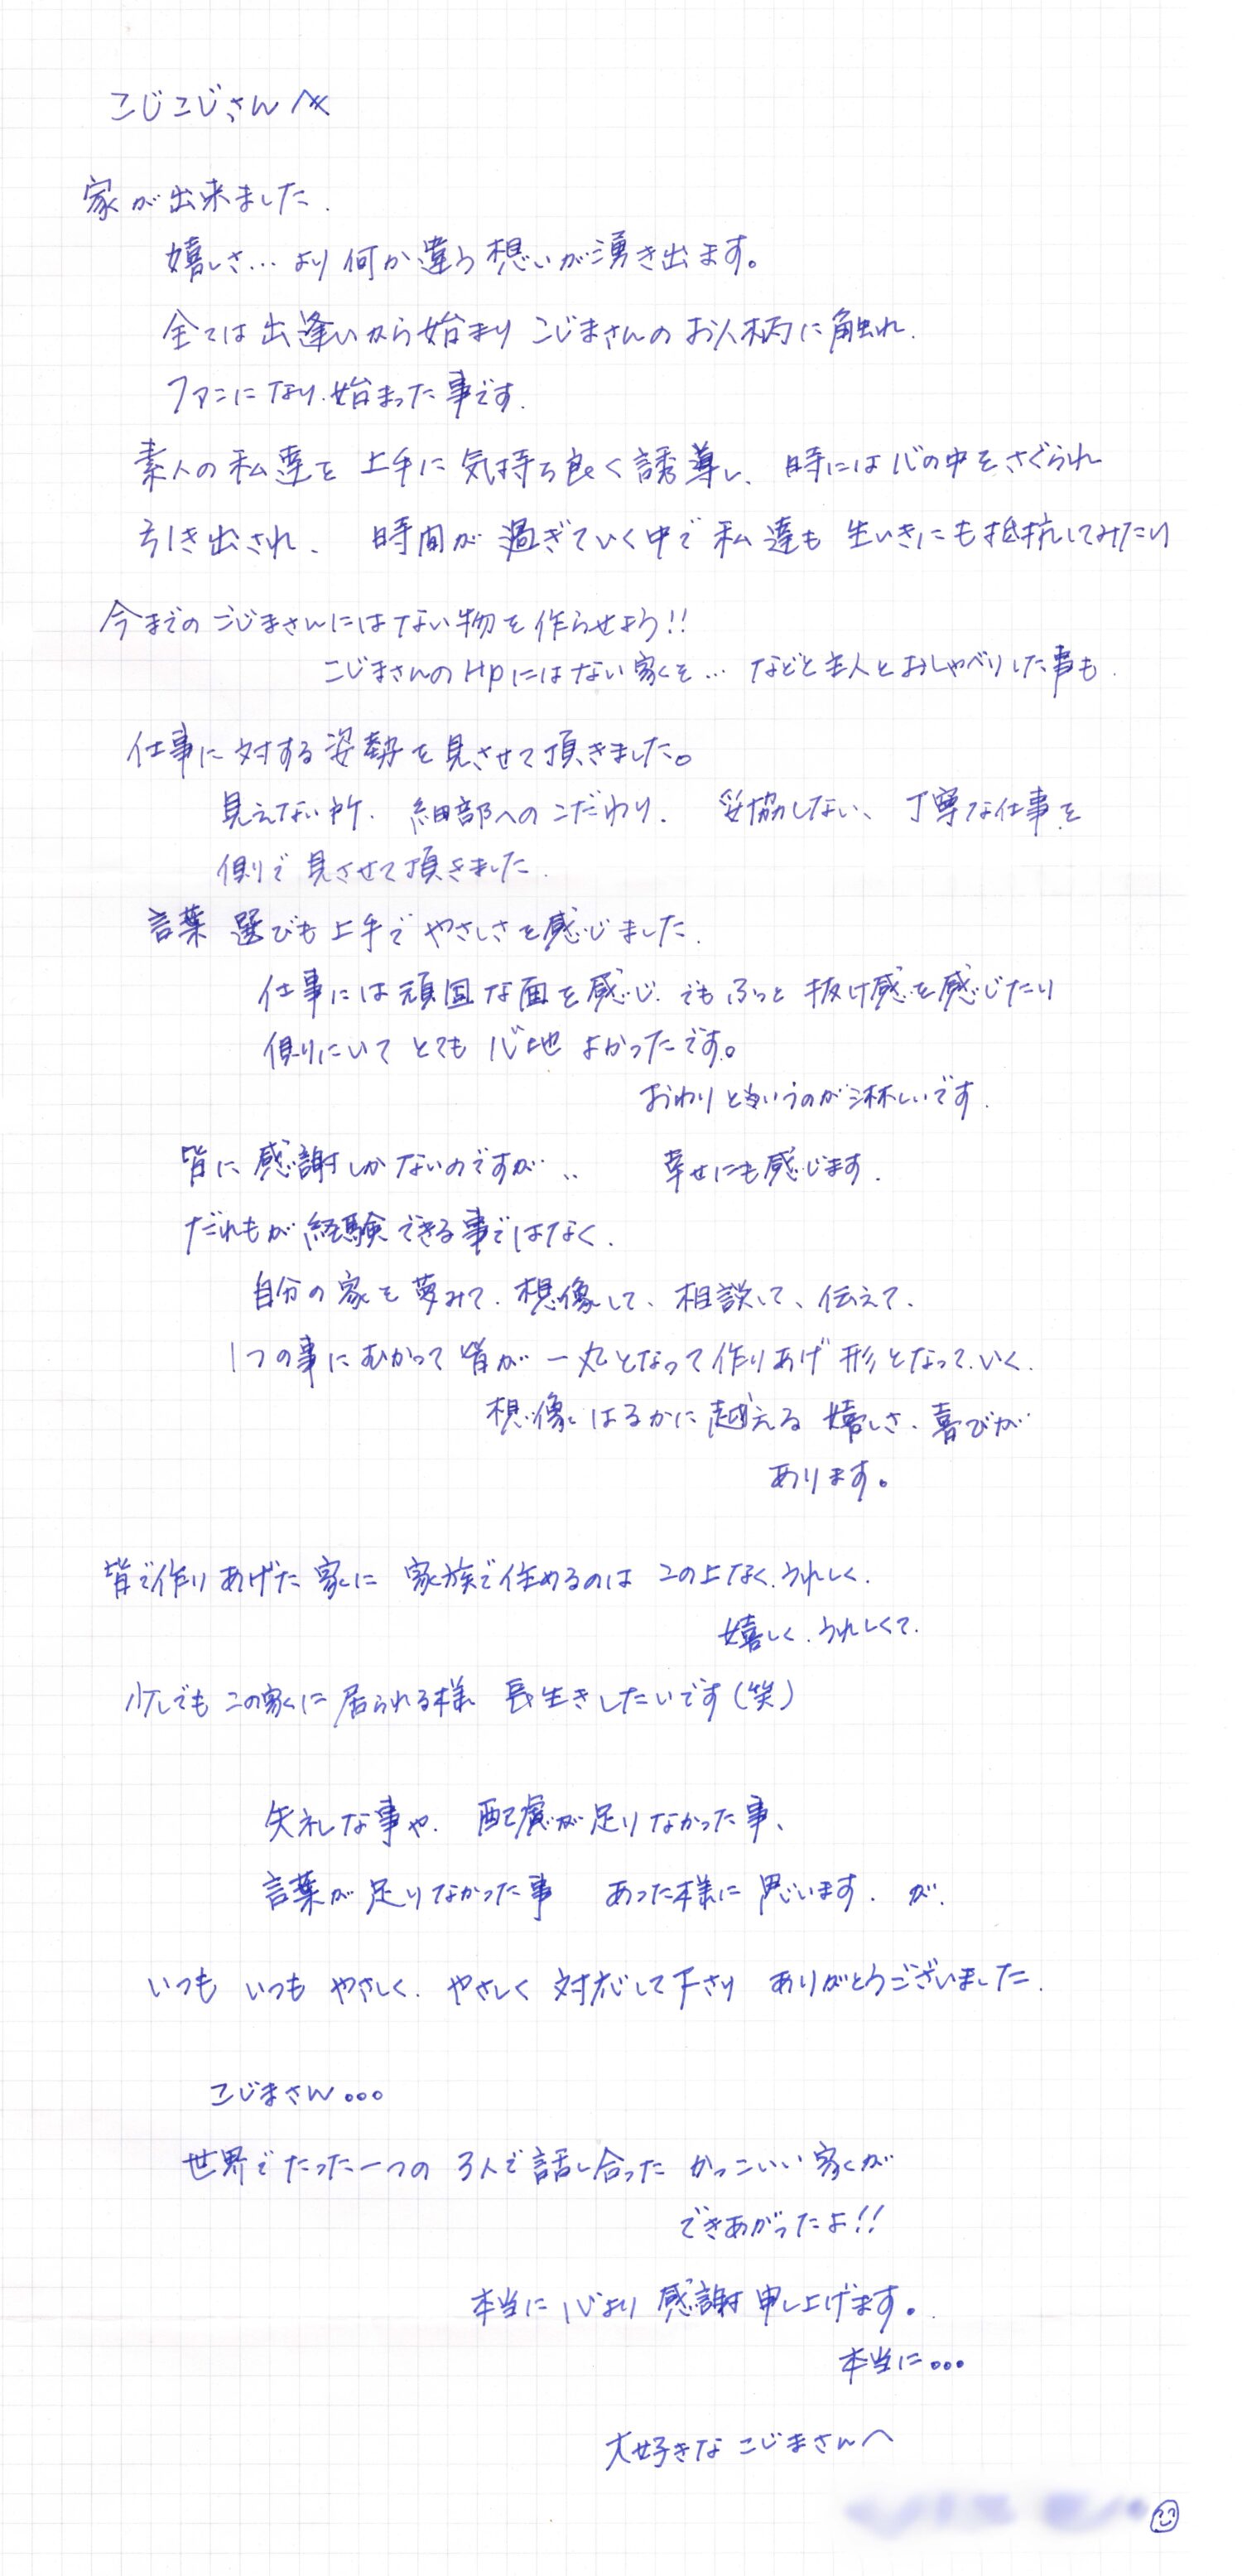 こじこじさんへ
家が出来ました.
嬉しさ… より何か違う想いが湧き出ます。
全ては出逢いから始まり こじまさんのお人柄に触れ.
ファンになり.始まった事です.
素人の私達を 上手に気持ち良く誘導し、時には心の中をさぐられ
引き出され、 時間が過ぎていく中で 私達も 生いきにも抵抗してみたり
今までのこじまさんにはない物を作らせよう!!
こじまさんのHPにはない家を… などと主人とおしゃべりした事も.
仕事に対する姿勢を見させて頂きました。
見えない所. 細部へのこだわり. 妥協しない、丁寧な仕事を
側で見させて頂きました.
言葉 選びも上手で やさしさを感じました.
仕事には頑固な面を感じ. でもふっと 抜け感を感じたり
側にいて とても 心地 よかったです。
おわりと言うのが淋しいです.
皆に感謝しかないのですが‥ 幸せにも感じます.
だれもが経験できる事ではなく.
自分の家を夢みて. 想像して、相談して、伝えて、
1つの事にむかって 皆が 一丸となって作りあげ 形となって.いく.
想像 はるかに越える 嬉しさ、喜びが
あります。
皆で作りあげた家に 家族で住めるのは この上なく.うれしく.
嬉しく.うれしくて.
少しでもこの家に居られる様 長生きしたいです(笑)
失礼な事や. 配慮が足りなかった事、
言葉が足りなかった事 あった様に思います. が.
いつも いつも やさしく. やさしく 対応して下さり ありがとうございました.
こじまさん...
世界でたった一つの 3人で話し合った かっこいい家が
できあがったよ!!
本当に 心より 感謝申し上げます。
本当に...
大好きな こじまさんへ